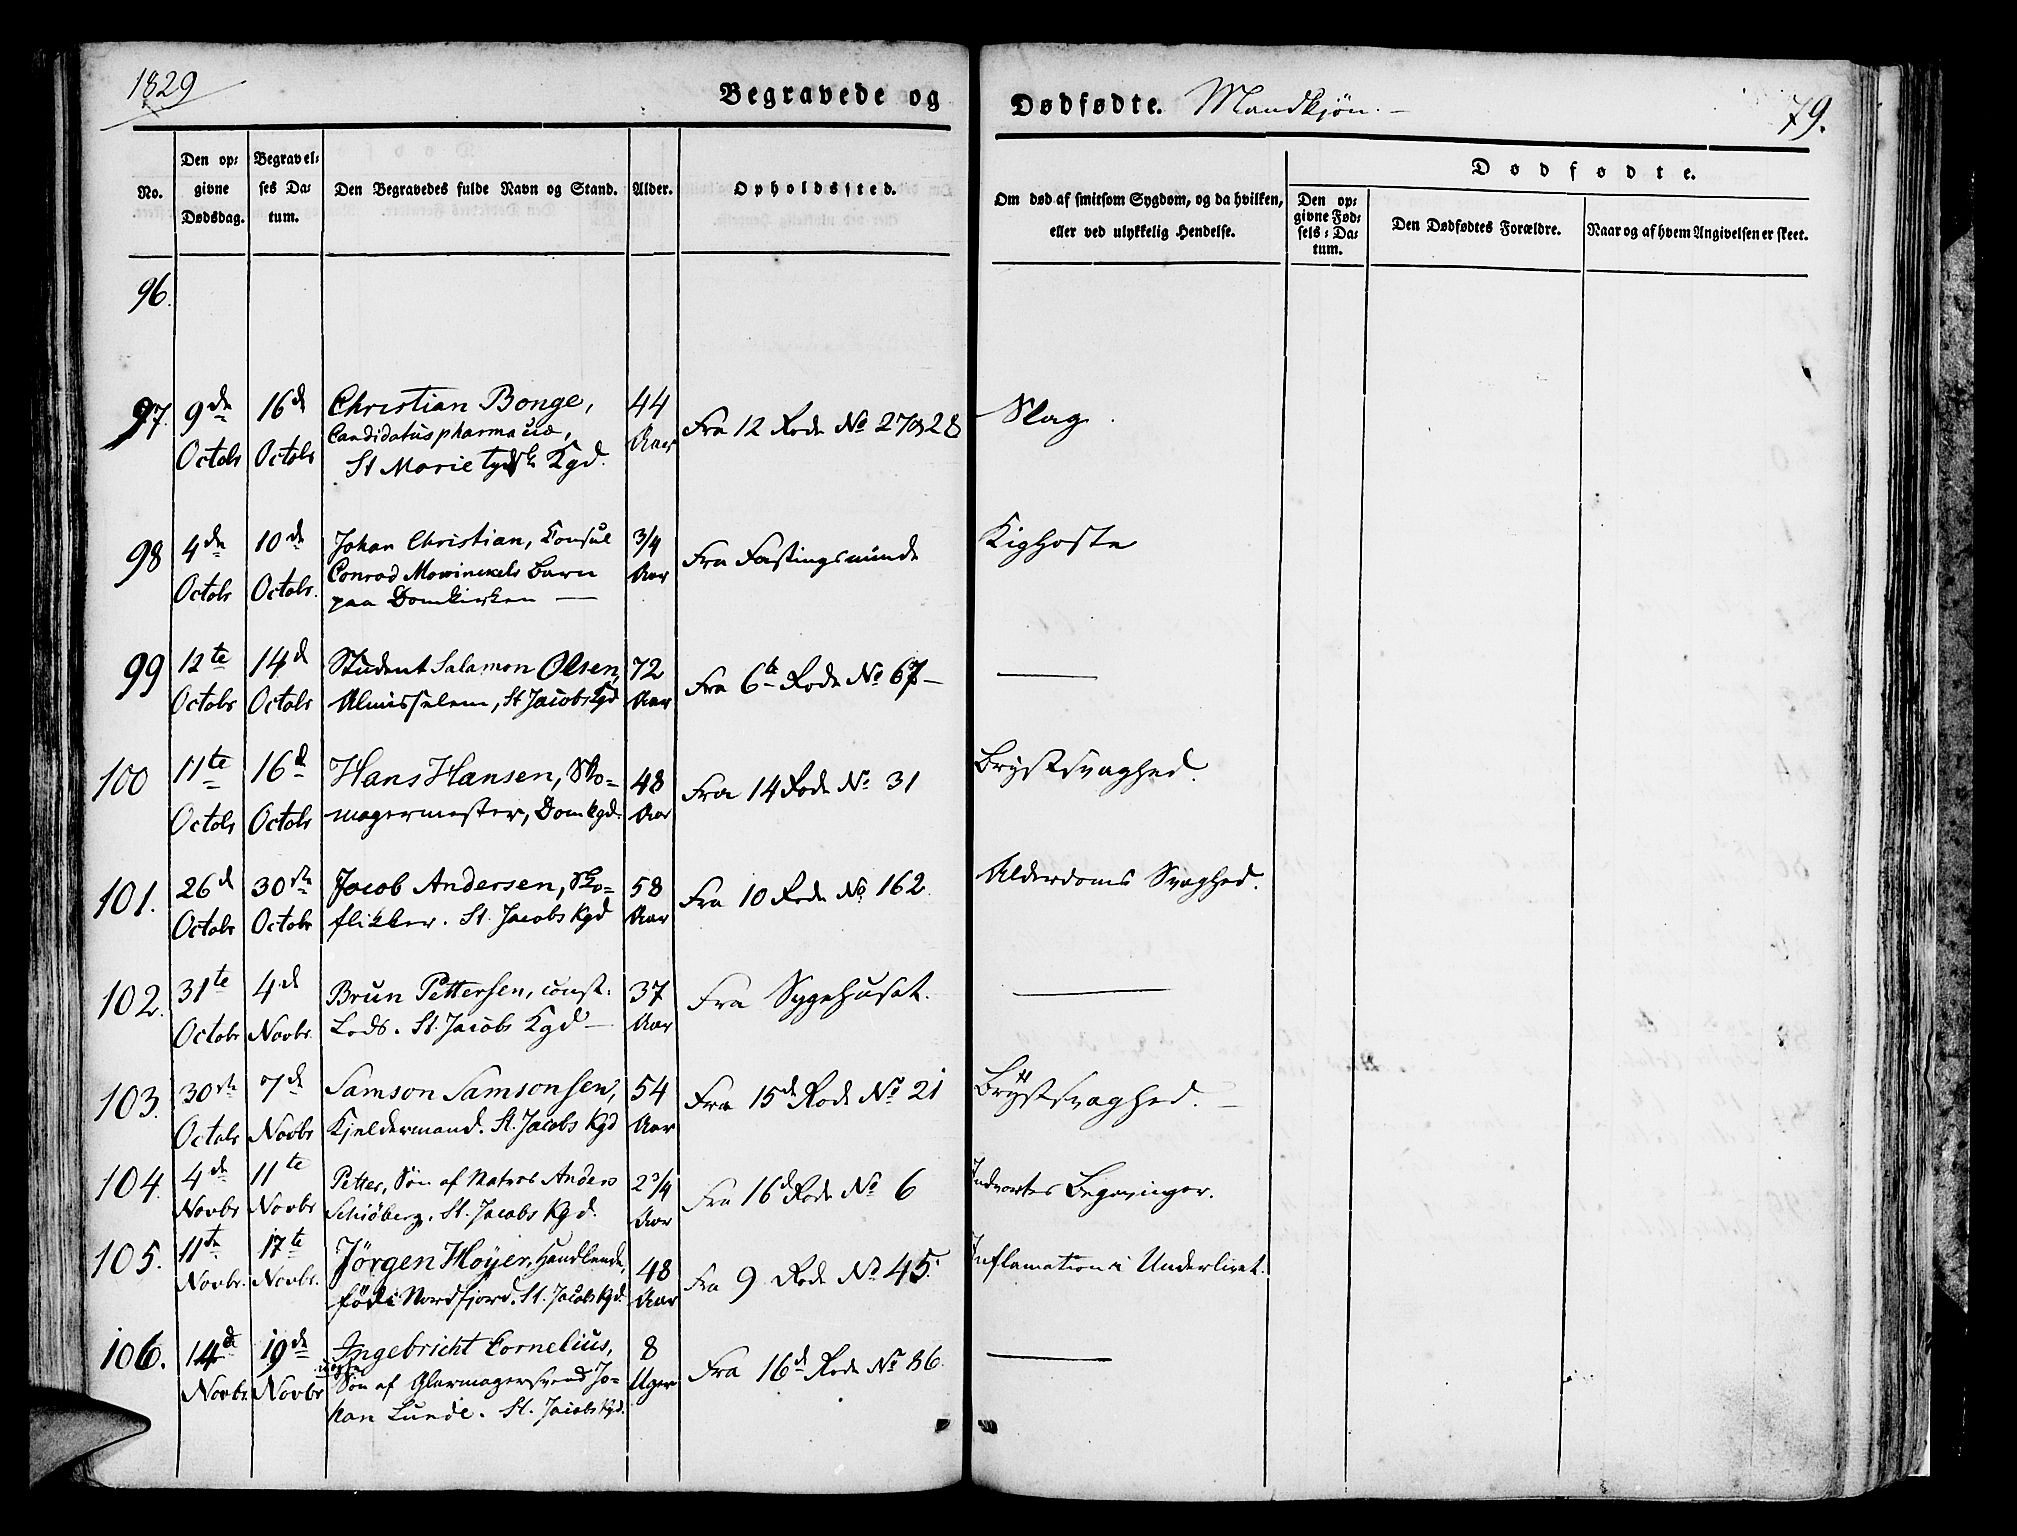 1829
Begravede og Dødfødte. Mandkjøn.
79.
No.
Den op-
givne
Dødsdag.
Begravel-
ses Da-
tum.
Den Begravedes fulde Navn og Stand.
Alder.
Opholdssted.
Om død af smitsom Sygdom, og da hvilken,
eller ved ulykkelig Hendelse.
Dødfødte.
Den op-
givne Fød-
sels-Da-
tum.
Den Dødfødtes Forældre.
Naar og af hvem Angivelsen er skeet.
96.
97. 9de Octobr 16d Octobr
Christian Bonge,
Candidatus pharmaciæ,
St Marie tydsk Kgd.
44 Aar
Fra 12 Rode No 27 og 28
Slag.
98 4de Octobr 10de Octobr.
Johan Christian, Consul
Conrad Mowinckels Barn
paa Domkirken —
3/4 Aar
Fra Fastingsmunde
Kighoste
99 12te Octobr 14d Octobr
Student Salamon Olsen,
Almisselem, St Jacobs Kgd
72 Aar
Fra 6te Rode No 67 —
—
100 11te Octobr 16d Octobr
Hans Hansen, Sko-
magermester, Domkgd.
48 Aar
Fra 14 Rode No 31
Brystsvaghed.
101. 26d Octobr 30te Octobr
Jacob Andersen, Sko-
flikker. St. Jacobs Kgd
58 Aar
Fra 10 Rode No 162.
Alderdoms Svaghed.
102. 31te Octobr 4d Novbr.
Brun Pettersen, const.
Lods. St. Jacobs Kgd —
37 Aar
Fra Sygehuset.
—
103. 30te Octobr 7de Novbr
Samson Samsonsen,
Kjeldermand. St. Jacobs Kgd
54 Aar
Fra 15de Rode No 21
Brystsvaghed. —
104. 4de Novbr 11te Novbr
Petter, Søn af Matros Anders
Schiöberg, St. Jacobs Kgd.
2 3/4 Aar
Fra 16d Rode No 6
Indvortes
105. 11te Novbr. 17te Novbr.
Jörgen Høyer, Handlende,
föd i Nordfjord. St. Jacobs Kgd.
48 Aar
Fra 9 Rode No 45.
Inflamation i Underlivet.
106. 14d Novbr 19de Novbr
Ingebricht Cornelius,
uægte
Søn af Glarmagersvend Jo-
han Lunde. St. Jacobs Kgd.
8 Uger
Fra 16d Rode No 86.
—